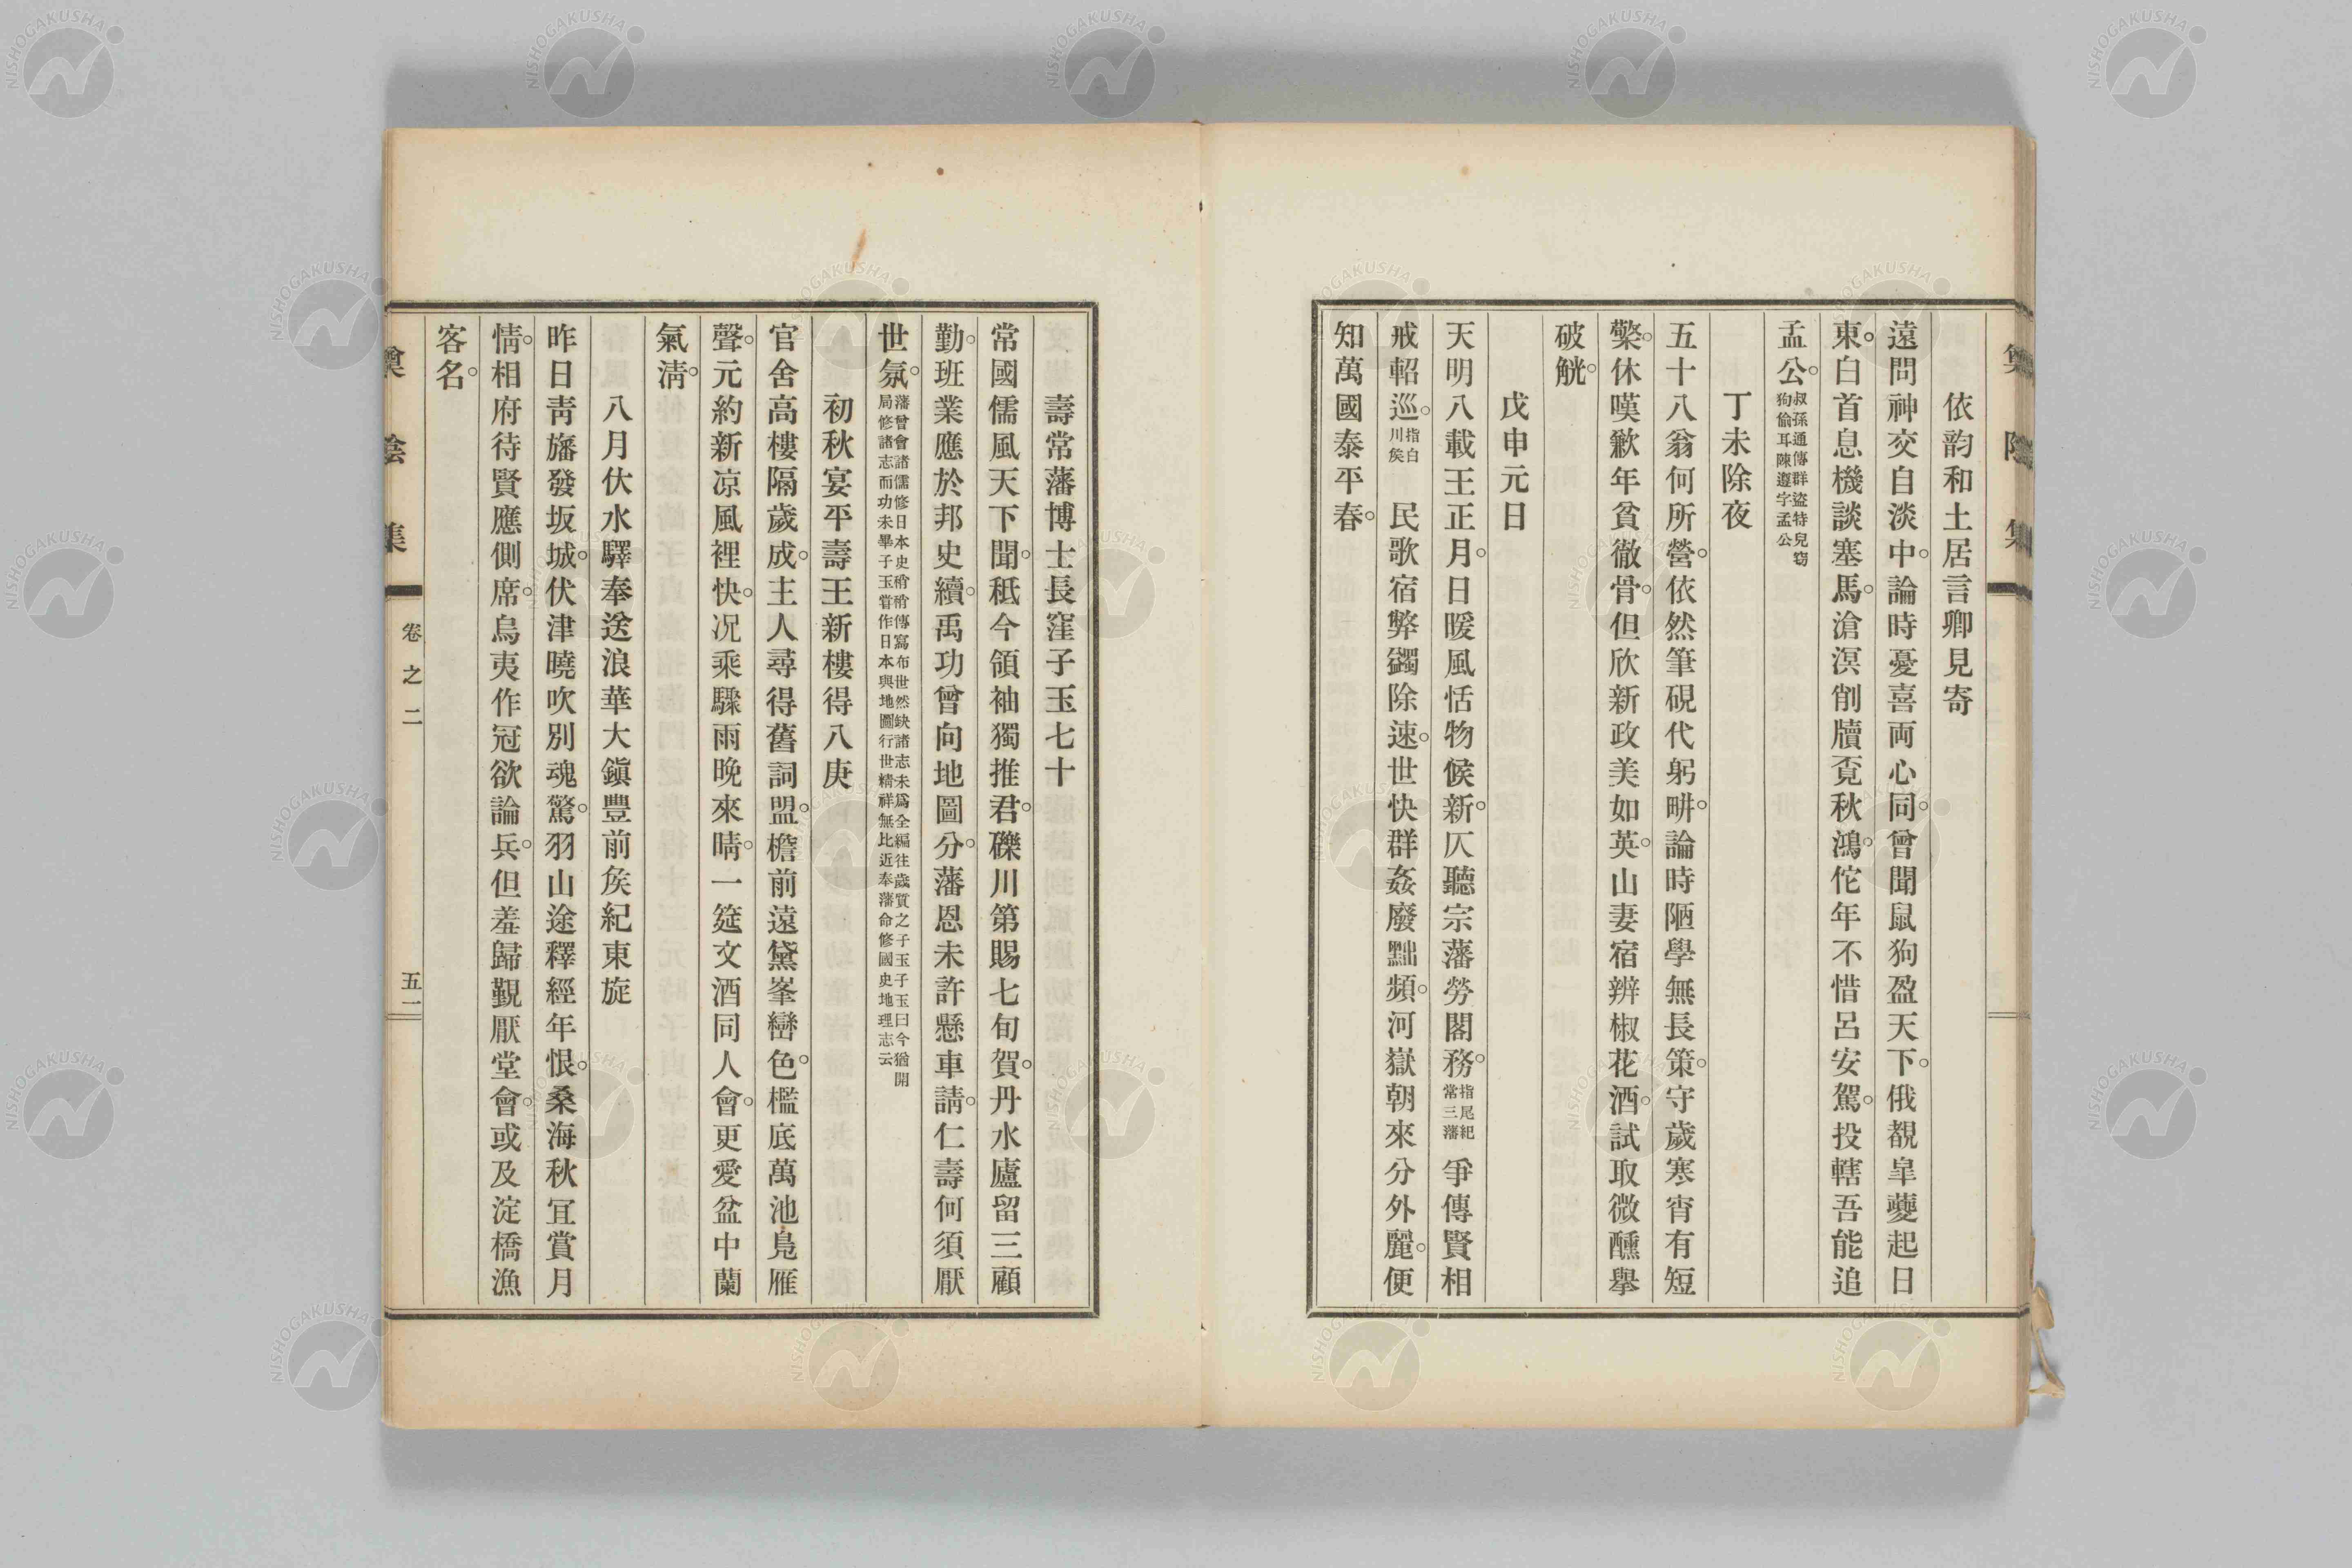 依韵和土居言卿見寄
遠問神交自淡中。論時憂喜両心同。曾聞鼠狗盈天下。俄覩皐夔起日
東。白首息機談塞馬。滄溟削牘覔秋鴻。佗年不惜呂安駕。投轄吾能追
孟公。叔孫通傳群盜特兒窃狗偷耳陳遵字孟公
丁未除夜
五十八翁何所營。依然筆硯代躬畊。論時陋學無長策。守歲寒宵有短
檠。休嘆歉年貧徹骨。但欣新政美如英。山妻宿辨椒花酒。試取微醺擧
破觥。
戊申元日
天明八載王正月。日暖風恬物候新。仄聽宗藩勞閣務。指尾紀常三藩 爭傳賢相
戒軺巡。指白川矦 民歌宿弊蠲除速。世快群姦廢黜頻。河嶽朝來分外麗。便
知萬國泰平春。
壽常藩博士長窪子玉七十
常國儒風天下聞。秪今領袖獨推君。礫川第賜七旬賀。丹水廬留三顧
勤。班業應於邦史續。禹功曾向地圖分。藩恩未許懸車請。仁壽何須厭
世氛。藩曾會諸儒修日本史稍稍傳寫布世然缺諸志未爲全編往歲質之子玉子玉曰今猶開局修諸志而功未畢子玉嘗作日本輿地圖行世精祥無比近奉藩命修國史地理志云
初秋宴平壽王新樓得八庚
官舍高樓隔歲成。主人尋得舊詞盟。檐前遠黛峯巒色。檻底萬池鳧雁
聲。元約新凉風裡快。况乘驟雨晩來晴。一筵文酒同人會。更愛盆中蘭
氣淸。
八月伏水驛奉送浪華大鎭豐前矦紀東旋
昨日靑旛發坂城。伏津曉吹別魂驚。羽山途釋經年恨。桑海秋宜賞月
情。相府待賢應側席。烏夷作冦欲論兵。但羞歸覲厭堂會。或及淀橋漁
客名。
卷之二
五一